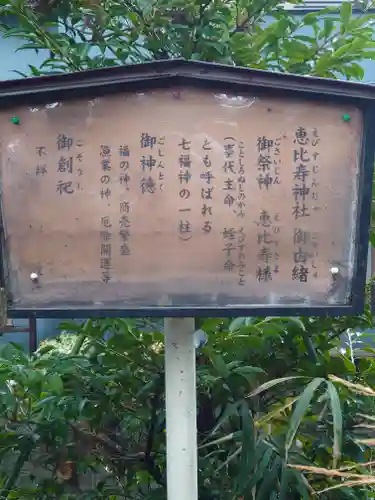 恵比寿神社 御由緒
御祭神 恵比寿様
(事代主命、蛭子命
とも呼ばれる
七福神の一柱)
御神徳
福の神、商売繁盛
漁業の神、厄除開運等
御創祀
不詳